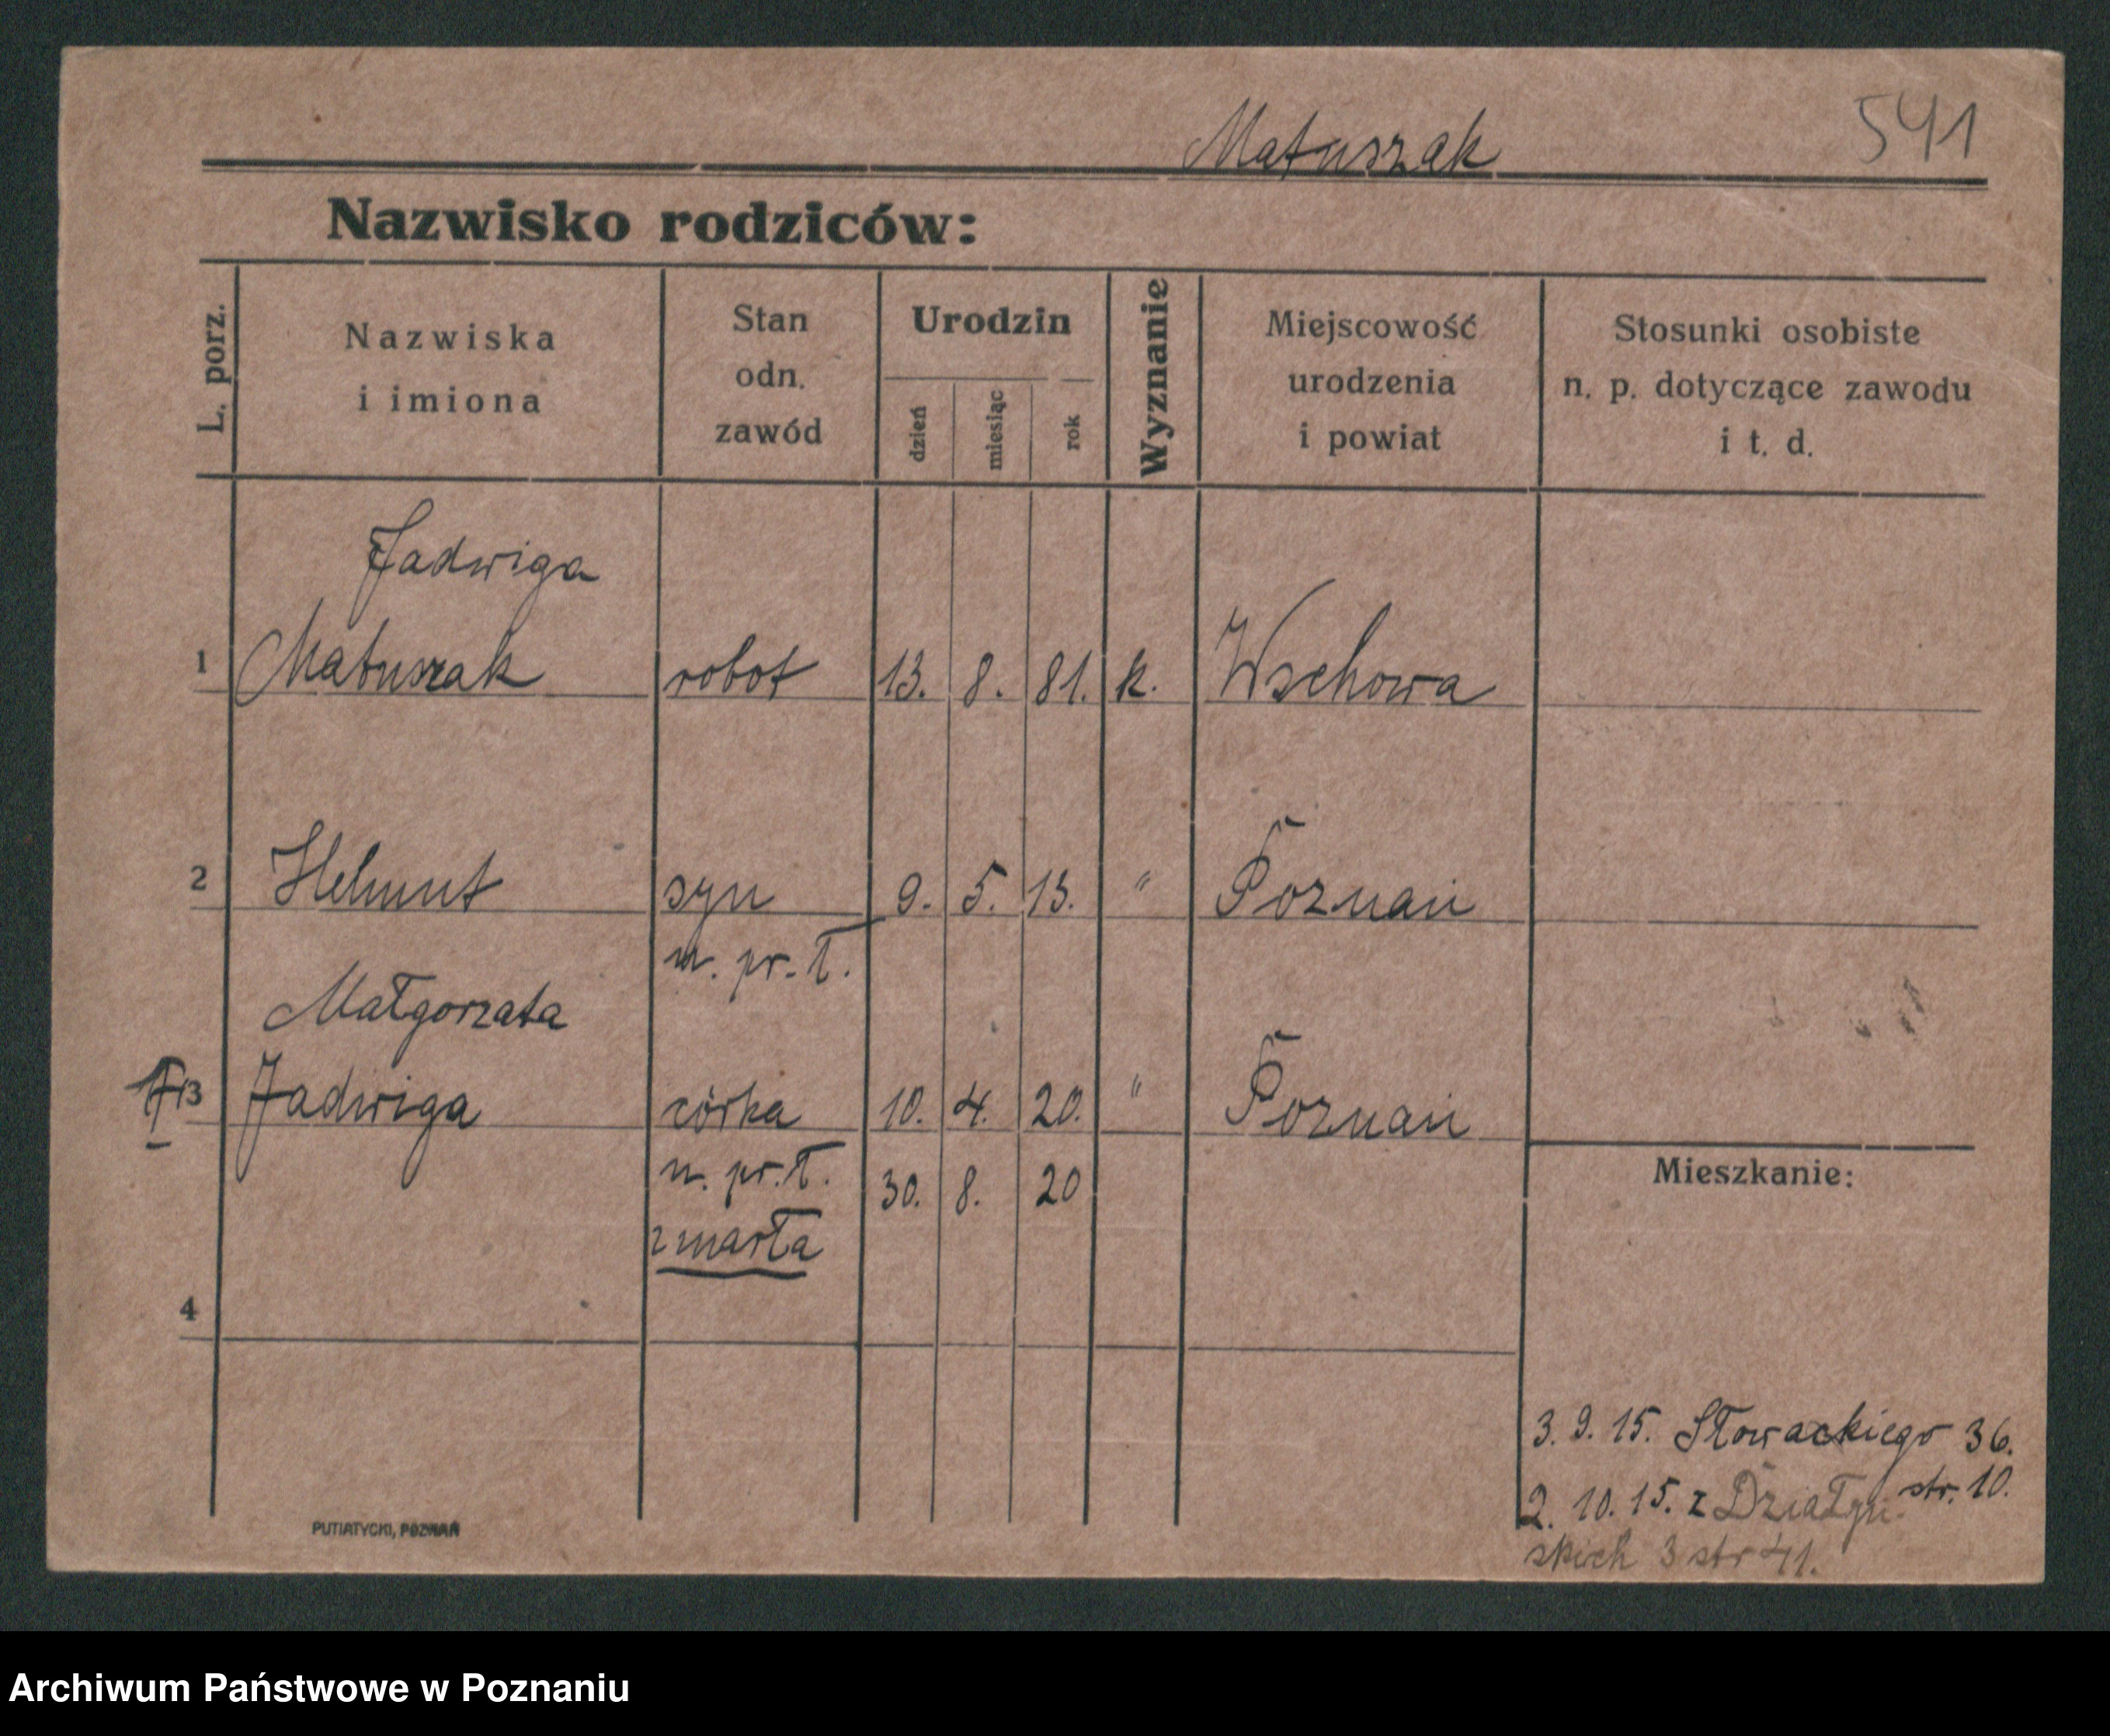 Matuszak
541
Nazwisko rodziców:
L. porz.
Nazwiska
i imiona
Stan
odn.
zawód
Urodzin
dzień
miesiąc
rok
Wyznanie
Miejscowość
urodzenia
i powiat
Stosunki osobiste
n. p. dotyczące zawodu
i t. d.
Jadwiga
1 Matuszak robot 13. 8. 81. k. Wschowa
2 Helmut syn 9. 5. 13. " Poznań
n. pr. ł.
Małgorzata
3 Jadwiga córka 10. 4. 20. " Poznań
n. pr. ł. 30. 8. 20
zmarła
Mieszkanie:
4
3. 9. 15. Słowackiego 36.
str. 10.
2. 10. 15. z Działyń-
skich 3 str 41.
PUTIATYCKI, POZNAŃ
Archiwum Państwowe w Poznaniu